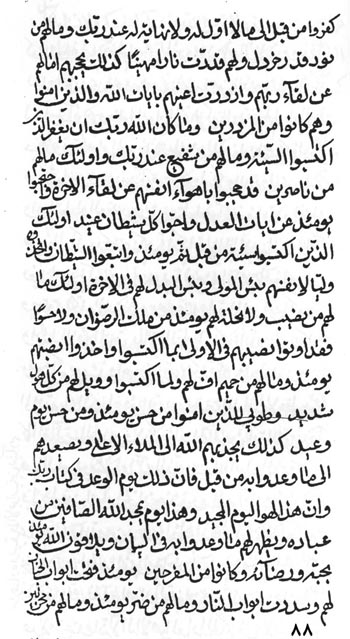 كفروا من قبل الى ما لا اول له ولا نهاية له عند ربك وما لهم من
نور قدر خردل ولهم قدرت نارا مهينا كذلك يجزيهم اعمالهم
عن لقاء ربهم وازورت اعينهم بايات الله والذين امنوا
وهم كانوا من المزورين وما كان الله ربك ان يغفر الذين
اكتسبوا السيئة وما لهم من شفيع عند ربك واولئك مالهم
من ناصرين قد حجبوا باهواء انفسهم عن لقاء الاخرة
يومئذ عن ايات العدل كل شيطان عنيد اولئك
الذين اكتسبوا سيئة من قبل يومئذ واتبعوا الشيطان
وليا لانفسهم بئس المولى وبئس البدل لهم في الاخرة اولئك ما
لهم من نصيب ولا لهم يومئذ من ملك الرضوان ولا
فقد اوتوا نصيبهم في الاولى بما اكتسبوا واخذوا نصيبهم
يومئذ وما لهم من حميم اف لهم ولما اكتسبوا وويل لهم من كل هول
شديد وطوبى للذين امنوا من حسن يومئذ ومن حسن يوم
وعيد كذلك يجذبهم الله الى الملاء الاعلى ويصعدهم
الى ما وعدوا به من قبل فان ذلك يوم الوعد في كتاب ربك
وان هذا لهو اليوم المجيد وهذا يوم يجد الله الصافين من
عباده ويظهر لهم ما وعدوا به في البيان ويلاقون الله
بحبه ورضائه وكانوا من المفرحين يومئذ فتحت ابواب
لهم وسدرت ابواب النار وما لهم من ضر يومئذ وما لهم من
٨٨